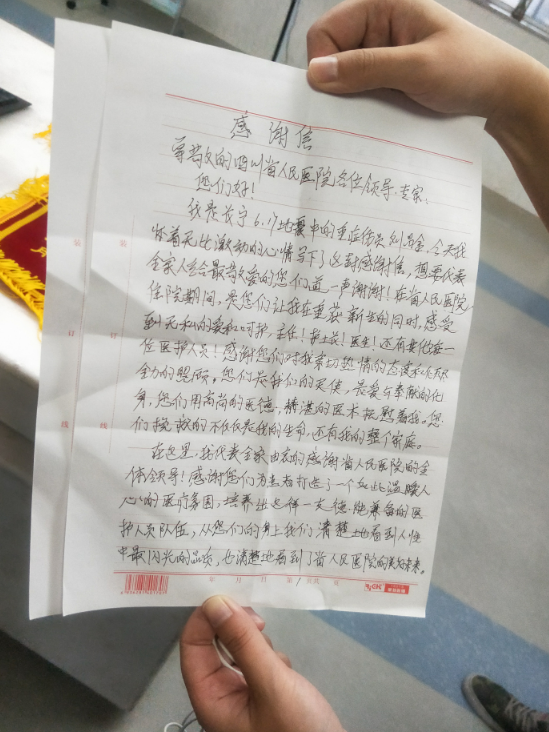 感谢信
尊敬的四川省人民医院各位领导、专家:
您们好!
我是长宁6.17地震中的重症伤员,今天我
怀着无比激动的心情写下这封感谢信,想要代表
全家人会给最敬爱的您们道一声谢谢!在省人民医院
住院期间,是您们让我在重获新生的同时,感受
到无私的爱和呵护,主任!护士长!医生!还有其他每一
位医护人员!感谢您们对我亲切热情的态度和
全力的照顾。您们是我们的天使,是爱与奉献的化
身,您们用高尚的医德,精湛的医术抚慰着我。您
们拯救的不仅仅是我的生命,还有我的整个家庭。
在这里,我代表全家由衷的感谢省人民医院的全
体领导!感谢您们为患者打造了一个如此温暖人
心的医疗氛围,培养出这样一支德艺兼备的医
护人员队伍,从您们的身上我们清楚地看到人性
中最闪光的品质,也清楚地看到了省人民医院的美好未来。
年 月 日 第 1 页 共 页
装
订
线
装
订
线